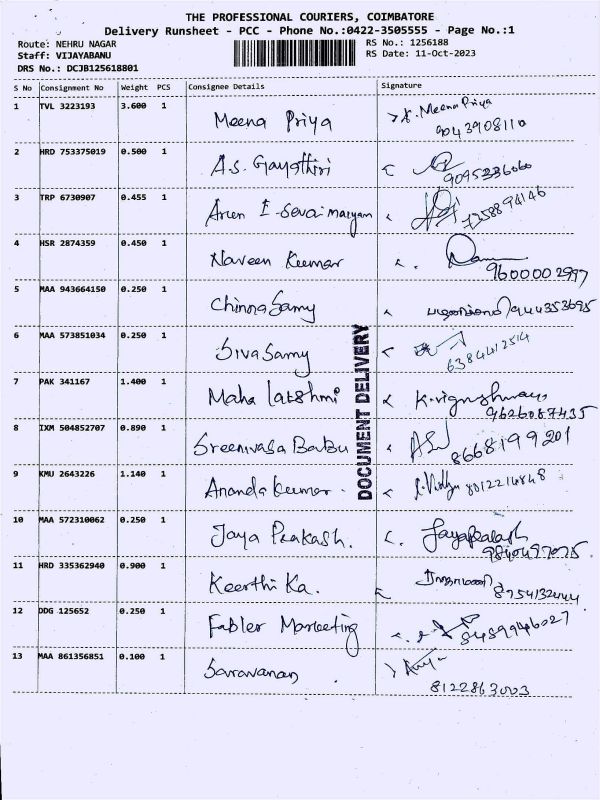 THE PROFESSIONAL COURIERS, COIMBATORE
Delivery Runsheet - PCC - Phone No.:0422-3505555 - Page No.:1
Route: NEHRU NAGAR
RS No.: 1256188
Staff: VIJAYABANU
RS Date: 11-Oct-2023
DRS No.: DCJB125618801
S No Consignment No Weight PCS Consignee Details Signature
1 TVL 3223193 3.600 1 Meena Priya Meena Priya
9043908110
2 HRD 753375019 0.500 1 A.S. Gayathiri
9095336060
3 TRP 6730907 0.455 1 Arun I-Sevai maiyam
7358894146
4 HSR 2874359 0.450 1 Naveen Kumar
9600002997
5 MAA 943664150 0.250 1 Chinna Samy 9444353695
6 MAA 573851034 0.250 1 Siva Samy
6384412514
7 PAK 341167 1.400 1 Maha lakshmi K.vigneshwary
9626087435
8 IXM 504852707 0.890 1 Sreenivasa Babu
8668199201
9 KMU 2643226 1.140 1 Ananda kumar. 8012214848
10 MAA 572310062 0.250 1 Jaya Prakash. Jayaprakash
9840497075
11 HRD 335362940 0.900 1 Keerthi Ka.
8754132444
12 DDG 125652 0.250 1 Fabler Marketing
8489946027
13 MAA 861356851 0.100 1 Saravanan
8122863003
DOCUMENT DELIVERY